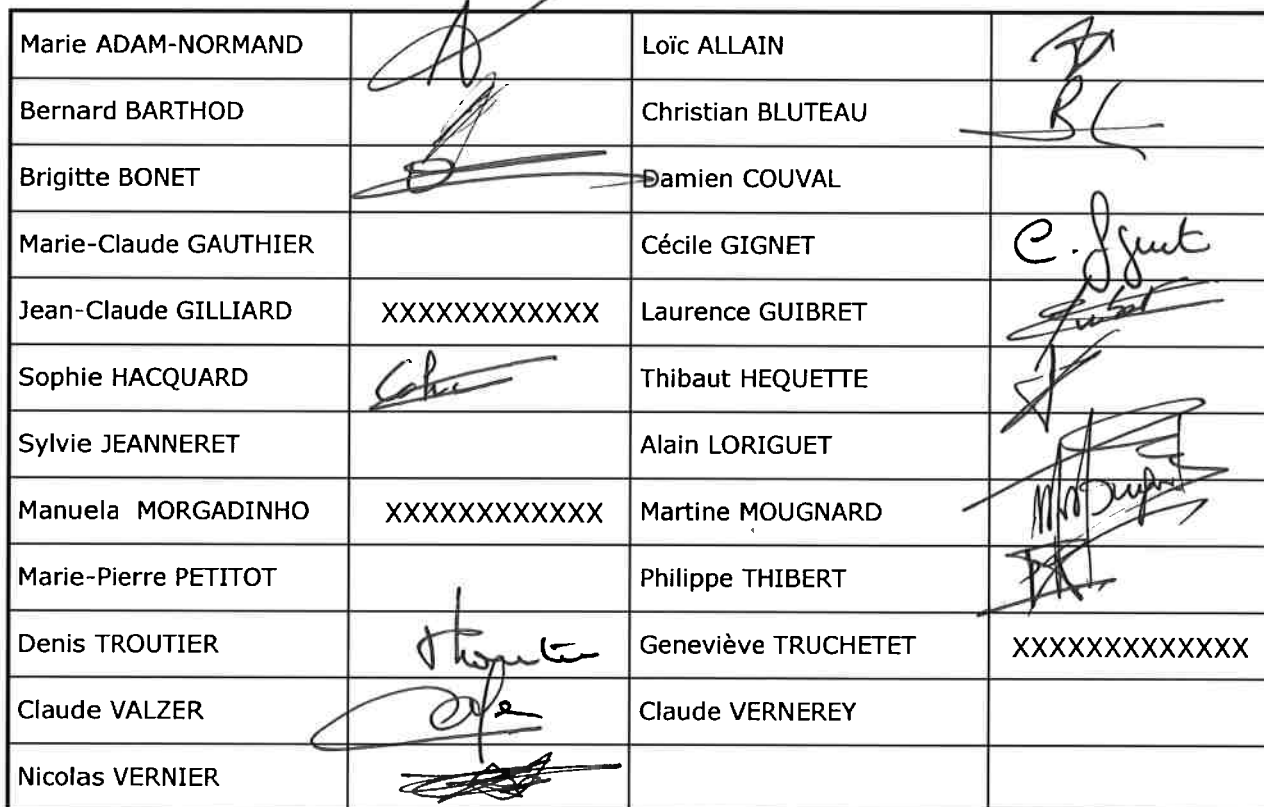 Marie ADAM-NORMAND Loïc ALLAIN
Bernard BARTHOD Christian BLUTEAU
Brigitte BONET Damien COUVAL
Marie-Claude GAUTHIER Cécile GIGNET C. Gignet
Jean-Claude GILLIARD XXXXXXXXXXXX Laurence GUIBRET
Sophie HACQUARD Thibaut HEQUETTE
Sylvie JEANNERET Alain LORIGUET
Manuela MORGADINHO XXXXXXXXXXXX Martine MOUGNARD
Marie-Pierre PETITOT Philippe THIBERT
Denis TROUTIER Geneviève TRUCHETET XXXXXXXXXXXXX
Claude VALZER Claude VERNEREY
Nicolas VERNIER